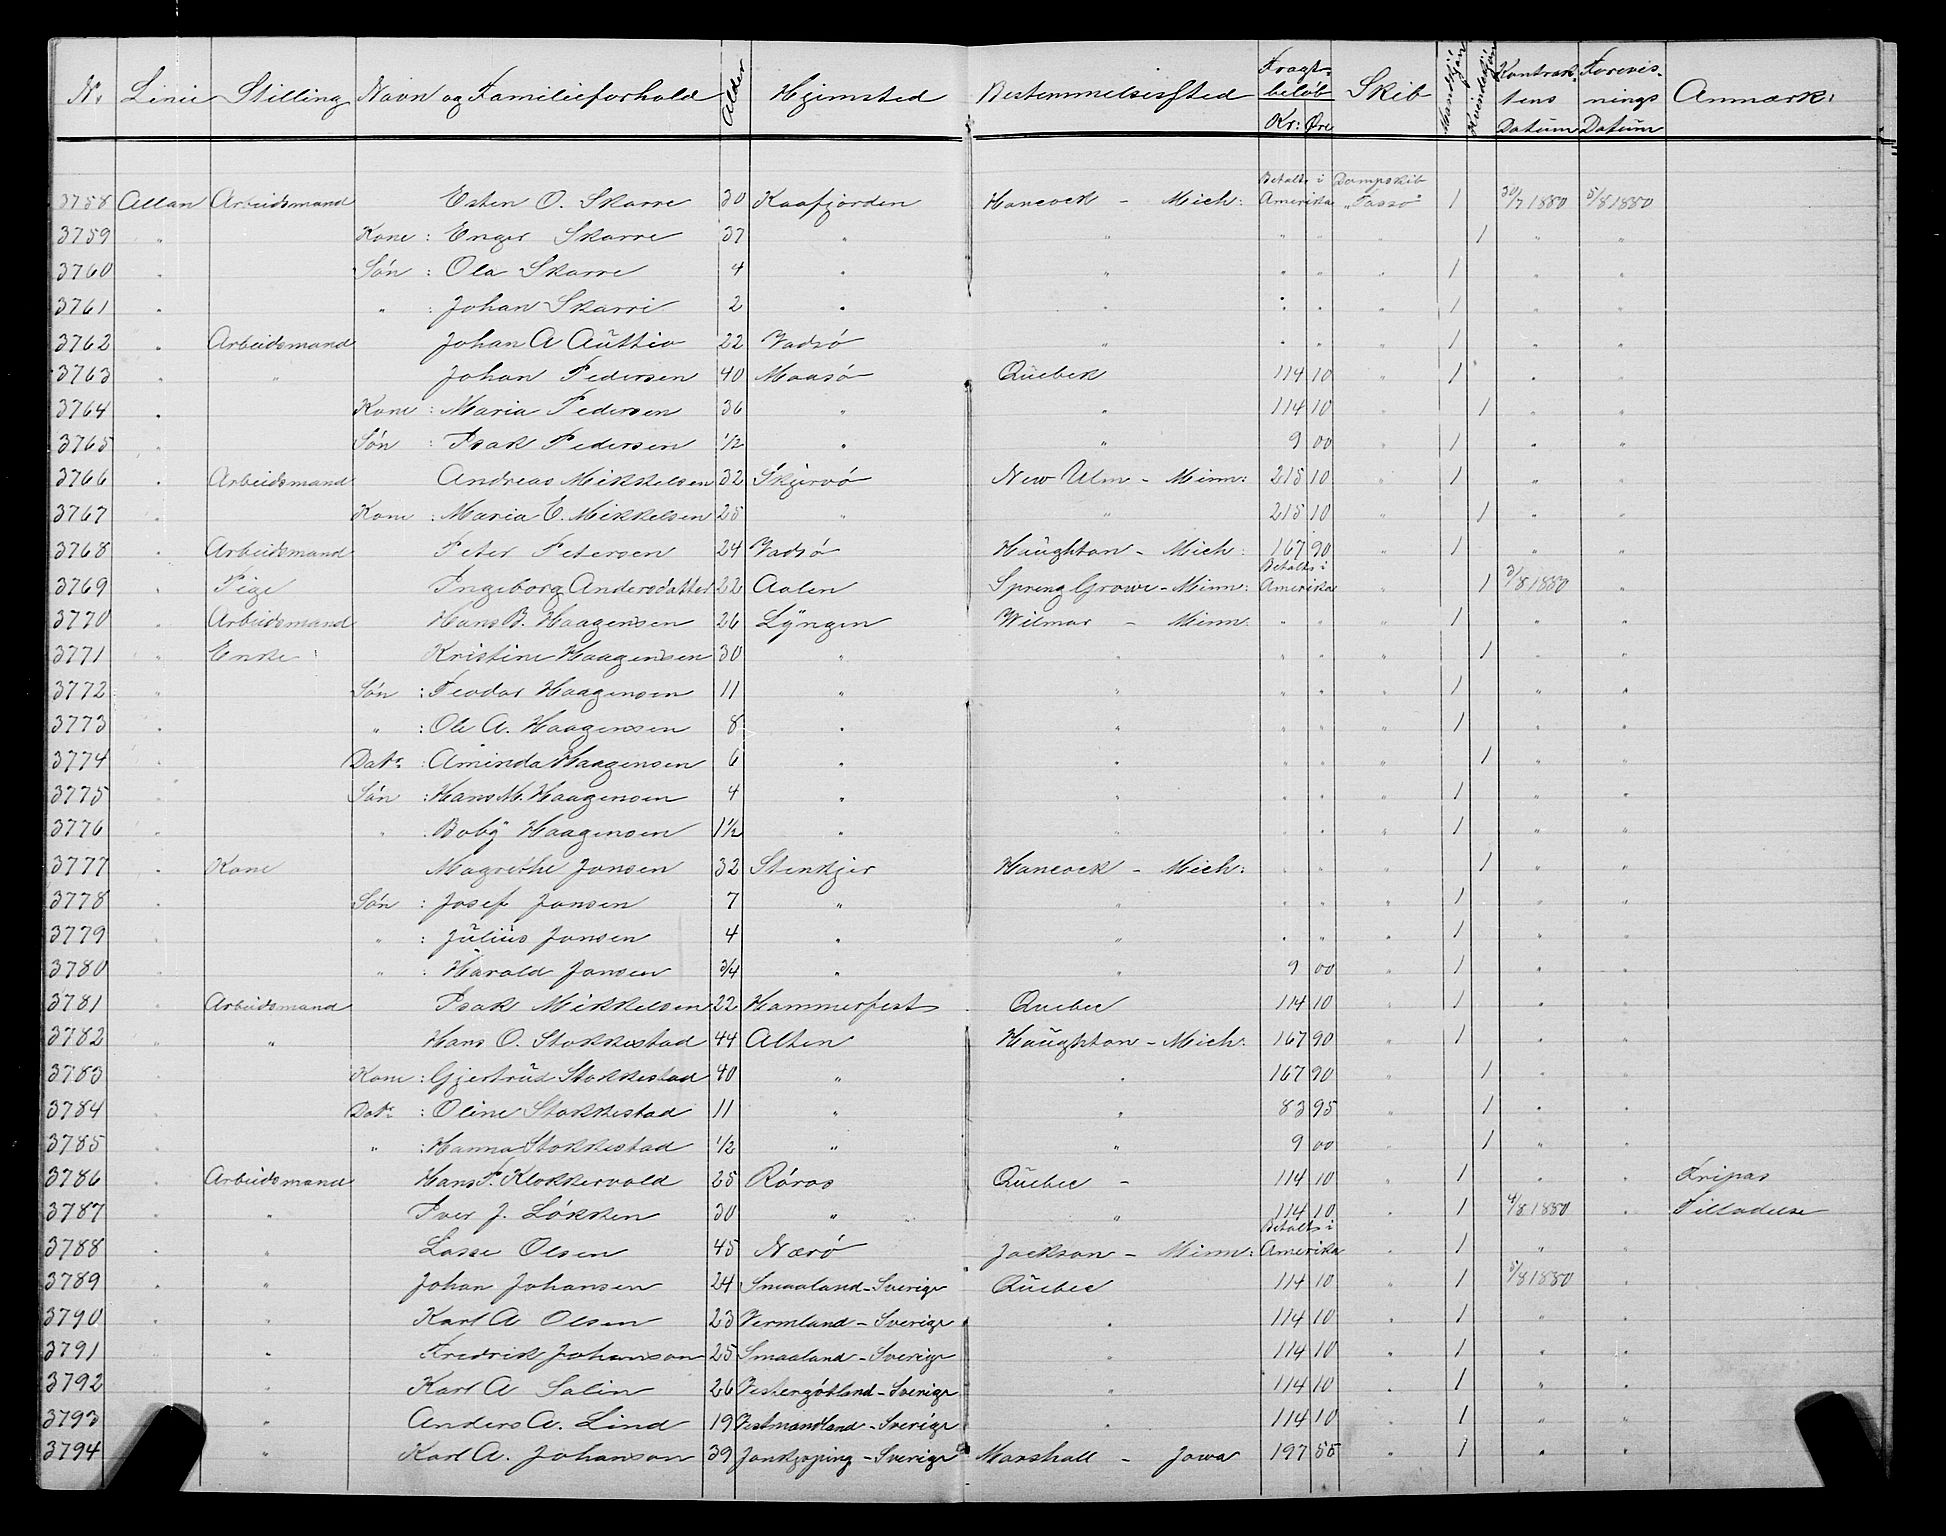 No. Linie Stilling Navn og Familieforhold Alder Hjemsted Bestemmelsessted Fragtbeløb Kr: Øre Skib Mandkjøn Kvindekjøn Kontraktens Datum Forevisnings Datum Anmærk:
3758 Allan Arbeidsmand Esten O. Skarre 30 Kaafjorden Hancock - Mich: Betalts i Amerika Dampskib "Tasso" 1 30/7 1880 5/8 1880
3759 " Kone : Enger Skarre 37 " " " " " 1 " "
3760 " Søn : Ola Skarre 4 " " " " " 1 " "
3761 " " : Johan Skarri 2 " " " " " 1 " "
3762 " Arbeidsmand Johan A Auttio 22 Vadsø " " " " 1 " "
3763 " " Johan Pedersen 40 Maasø Quebek 114 10 " 1 " "
3764 " Kone : Maria Pedersen 36 " " 114 10 " 1 " "
3765 " Søn : Isak Pedersen 1/2 " " 9 00 " 1 " "
3766 " Arbeidsmand Andreas Mikkelsen 32 Skjervø New Ulm - Minn: 215 10 " 1 " "
3767 " Kone : Maria E. Mikkelsen 25 " " 215 10 " 1 " "
3768 " Arbeidsmand Peter Petersen 24 Vadsø Haughton - Mich: 167 90 " 1 " "
3769 " Pige Ingeborg Andersdatter 22 Aalen Spreng Growe - Minn: Betalts i Amerika " 1 3/8 1880 "
3770 " Arbeidsmand Hans B. Haagensen 26 Lyngen Wilmar - Minn: " " " 1 " "
3771 " Enke : Kristine Haagensen 30 " " " " " 1 " "
3772 " Søn : Teodor Haagensen 11 " " " " " 1 " "
3773 " " : Ole A. Haagensen 8 " " " " " 1 " "
3774 " Datr: : Aminda Haagensen 6 " " " " " 1 " "
3775 " Søn : Hans M. Haagensen 4 " " " " " 1 " "
3776 " " : Boby Haagensen 1 1/2 " " " " " 1 " "
3777 " Kone Magrethe Jansen 32 Stenkjer Hancock - Mich: " " " 1 " "
3778 " Søn : Josef Jansen 7 " " " " " 1 " "
3779 " " : Julius Jansen 4 " " " " " 1 " "
3780 " " : Harald Jansen 3/4 " " 9 00 " 1 " "
3781 " Arbeidsmand Isak Mikkelsen 22 Hammerfest Quebec 114 10 " 1 " "
3782 " " Hans O. Stokkestad 44 Alten Haughton - Mich: 167 90 " 1 " "
3783 " Kone : Gjertrud Stokkestad 40 " " 167 90 " 1 " "
3784 " Datr: : Oline Stokkestad 11 " " 83 95 " 1 " "
3785 " " : Hanna Stokkestad 1/2 " " 9 00 " 1 " "
3786 " Arbeidsmand Hans P. Klokkervold 25 Røros Quebec - 114 10 " 1 " " Fripas
3787 " " Iver J. Løkken 30 " " 114 10 " 1 4/8 1880 " Tilladelse
3788 " " Lasse Olsen 45 Nærø Jackson - Minn: Betalts i Amerika " 1 " "
3789 " " Johan Johansen 24 Smaaland - Sverige Quebec 114 10 " 1 5/8 1880 "
3790 " " Karl A Olsen 23 Vermland - Sverige " 114 10 " 1 " "
3791 " " Fredrik Johanson 25 Smaaland - Sverige " 114 10 " 1 " "
3792 " " Karl A Salin 26 Vestergøtland - Sverige " 114 10 " 1 " "
3793 " " Anders A. Lind 19 Vestmandland - Sverige " 114 10 " 1 " "
3794 " " Karl A. Johanson 39 Jonkjøping - Sverige Marshall - Jowa 197 55 " 1 " "